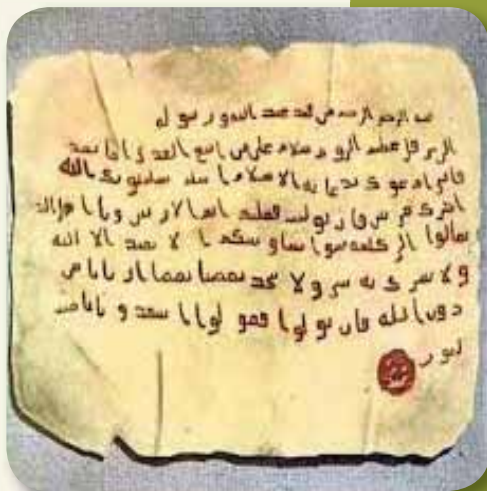 الرحمن الرحيم من محمد عبد الله ورسوله
الى هرقل عظيم الروم سلام على من اتبع الهدى اما بعد
فانى ادعوك بدعاية الاسلام اسلم تسلم يوتك الله
اجرك مرتين فان توليت فعليك اثم الاريسين ويا اهل
تعالوا الى كلمة سوا بيننا وبينكم الا نعبد الا الله
ولا نشرك به شيا ولا يتخذ بعضنا بعضا اربابا من
دون الله فان تولوا فقولوا اشهدوا بانا مس
لمون